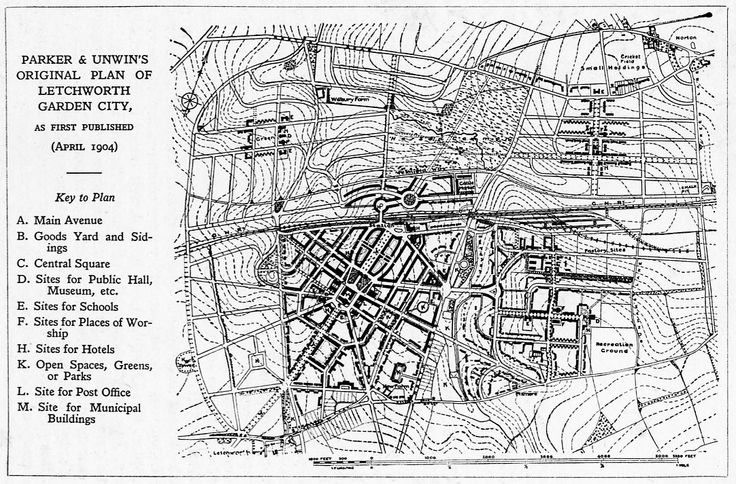 PARKER & UNWIN'S
ORIGINAL PLAN OF
LETCHWORTH
GARDEN CITY,
AS FIRST PUBLISHED
(APRIL 1904)
Key to Plan
A. Main Avenue
B. Goods Yard and Sid-
ings
C. Central Square
D. Sites for Public Hall,
Museum, etc.
E. Sites for Schools
F. Sites for Places of Wor-
ship
H. Sites for Hotels
K. Open Spaces, Greens,
or Parks
L. Site for Post Office
M. Site for Municipal
Buildings
Norton
Cricket
Field
Small Holdings
Wilbury Farm
Factory Sites
Recreation
Ground
Letchworth
1000 FEET
500
0
1000
2000
3000
4000
5000 FEET
1 MILE